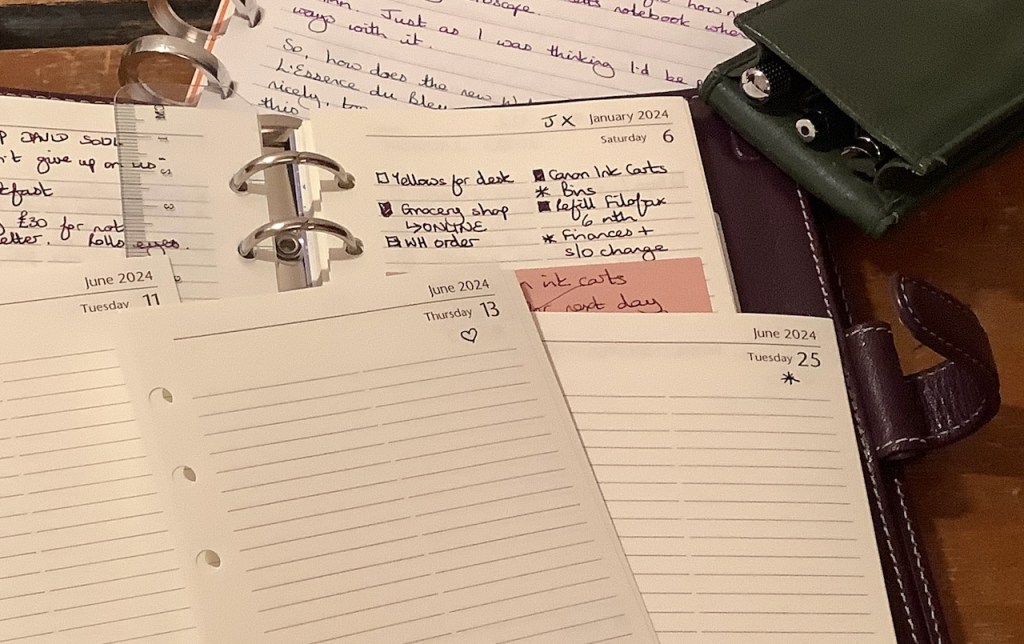 how no
notebook when
Just as I was thinking I'd be
ways with it.
So, how does the new
L'Essence du Bleu
nicely,
this
DAVID SOUL
give up on us-
£30 for not
Rolls eyes.
JX January 2024
Saturday 6
Yellows for desk
Grocery shop
↳ONLINE
WH order
Canon Ink Carts
* Bins
Refill Filofax
6 mth
* Finances +
s/o change
ink carts
next day
June 2024
Tuesday 11
June 2024
Thursday 13
♡
June 2024
Tuesday 25
*